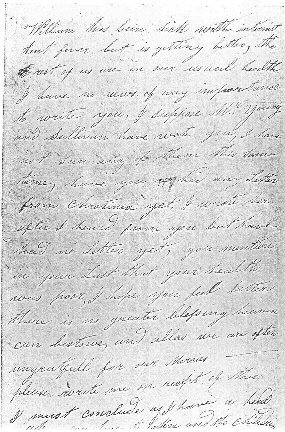 William has been sick with intermit
tent fever but is getting better, the
rest of us are in our usual health
I have no news of any importance
to write you, I suppose Mr Young
and Sullivan have wrote you, I have
not seen any of them this some
time, have you a letter
from yet I wrote
after I heard from you but have
had no letter yet, you mention
in your last that your health
was poor, I hope you feel better
there is no greater blessing heaven
can bestow, and allas we are often
ungratfull for our Mercies
please wrote me on receipt of this
I must conclude as I have a bad
John and the children